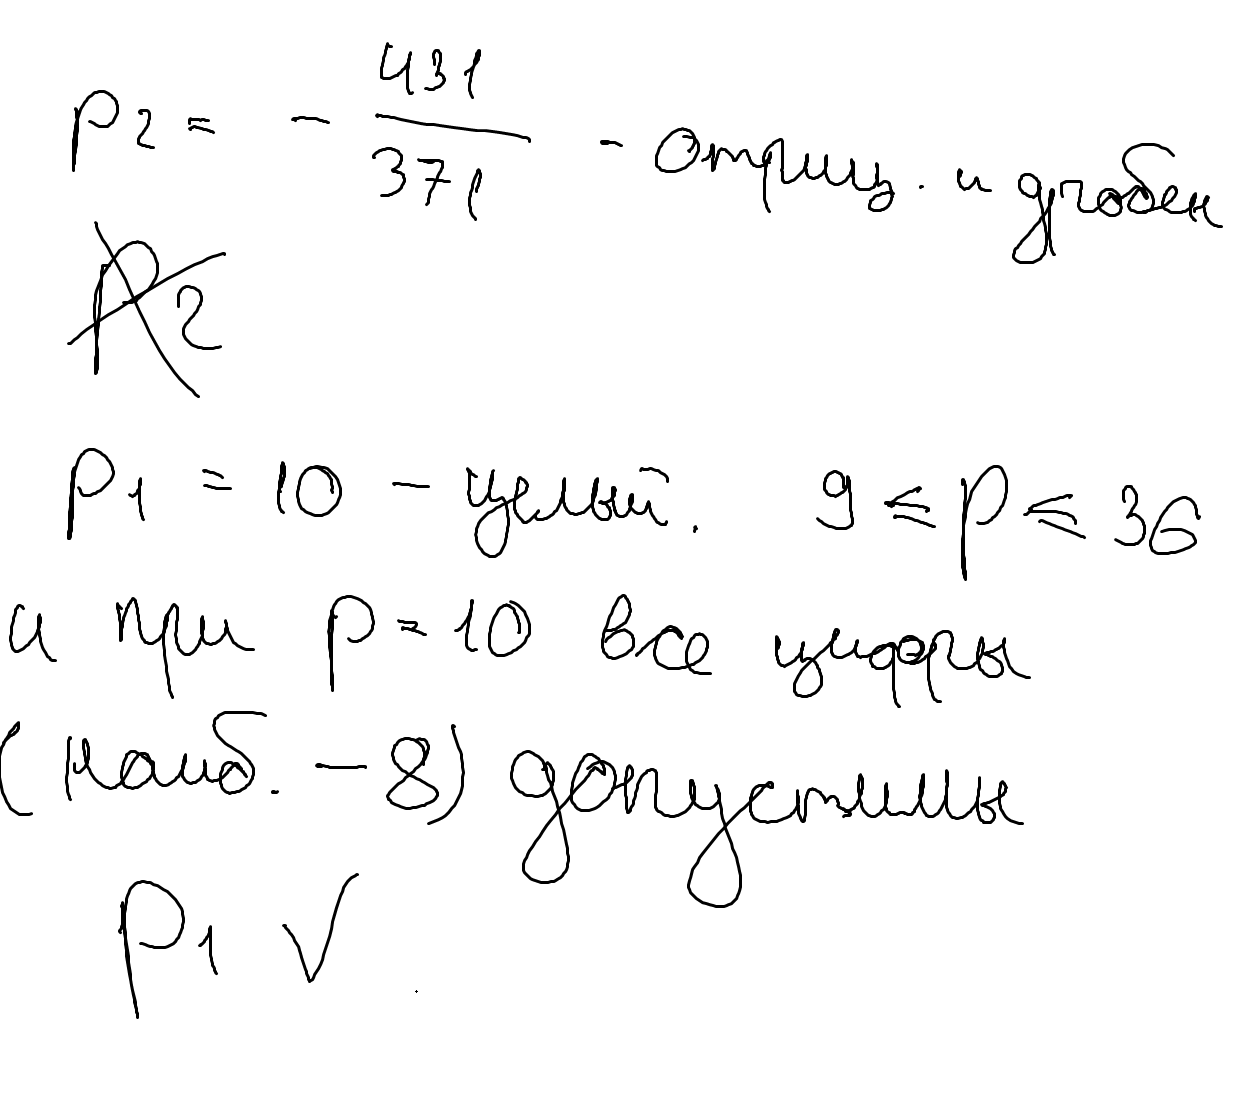 p2 = - 431/371 - отриц. и дробен
P2
p1 = 10 - целый. 9 ≤ p ≤ 36
и при p = 10 все цифры
(наиб. - 8) допустимы
p1 √